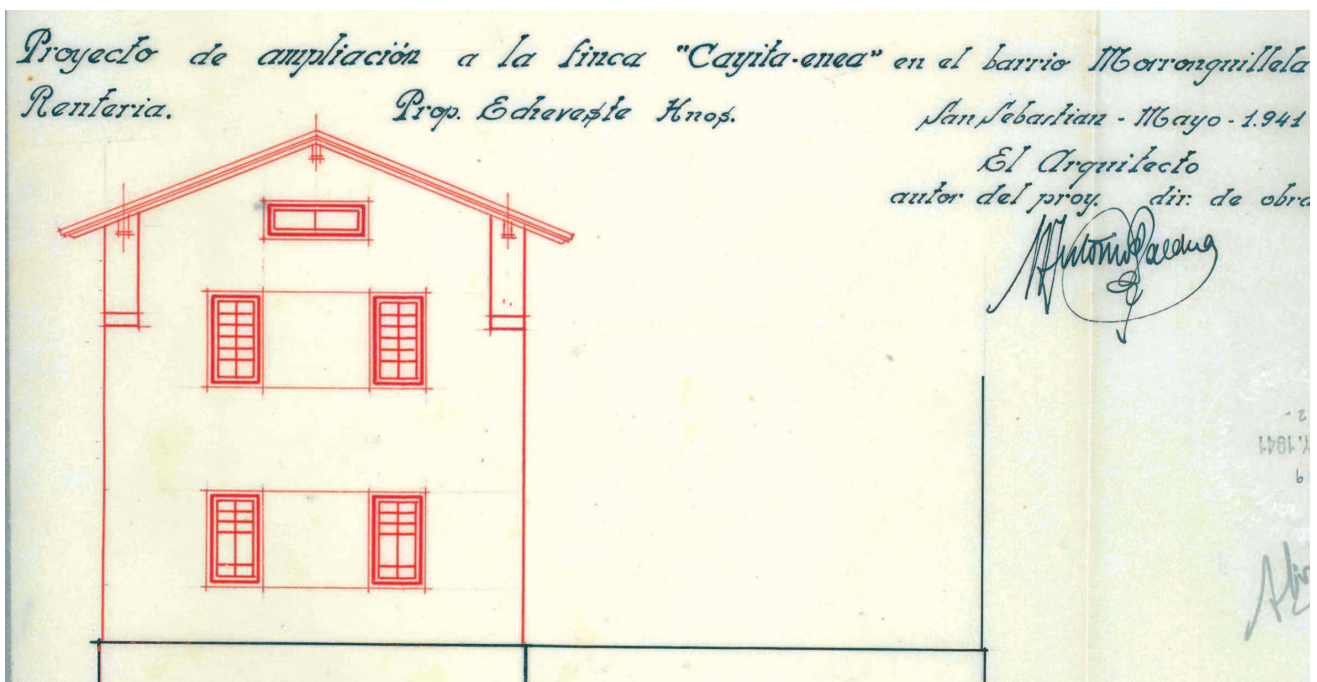 Proyecto de ampliación a la finca "Cayita-enea" en el barrio Morronguillela
Renteria. Prop. Echeveste Hnos. San Sebastian - Mayo - 1.941
El Arquitecto
autor del proy. dir. de obra
Antonio
1941